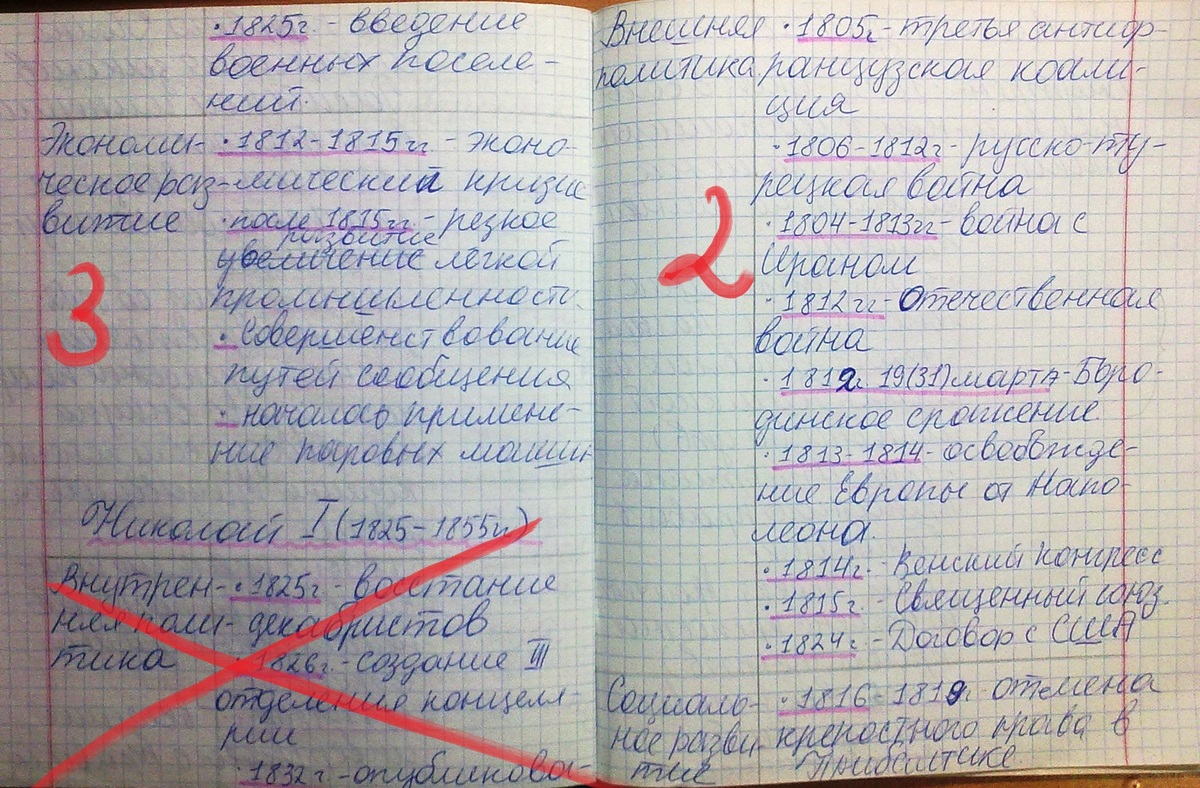 · 1825г. - введение
военных поселе-
ний.
Экономи- · 1812-1815гг - эконо-
ческое раз- -мический кризис
витие · после 1815гг - резкое
развитие
увеличение легкой
промышленности
· Совершенствование
путей сообщения
· началось примене-
ние паровых машин
3
Николай I (1825-1855гг)
Внутрен- · 1825г - восстание
няя поли- декабристов
тика · 1826г. - создание III
отделения канцеля-
рии
· 1832г - опубликова-
Внешняя · 1805г - третья антиф-
политика ранцузская коали-
ция
· 1806-1812г - русско-ту-
рецкая война
· 1804-1813гг - война с
Ираном
· 1812гг - Отечественная
война
· 1812г. 19(31)марта - Боро-
динское сражение
· 1813-1814 - освобжде-
ние Европы от Напо-
леона.
· 1814г. - Венский конгресс
· 1815г. - Священный союз.
· 1824г. - Договор с США
2
Социаль- · 1816-1819г - отмена
ное разви- крепостного права в
тие Прибалтике.